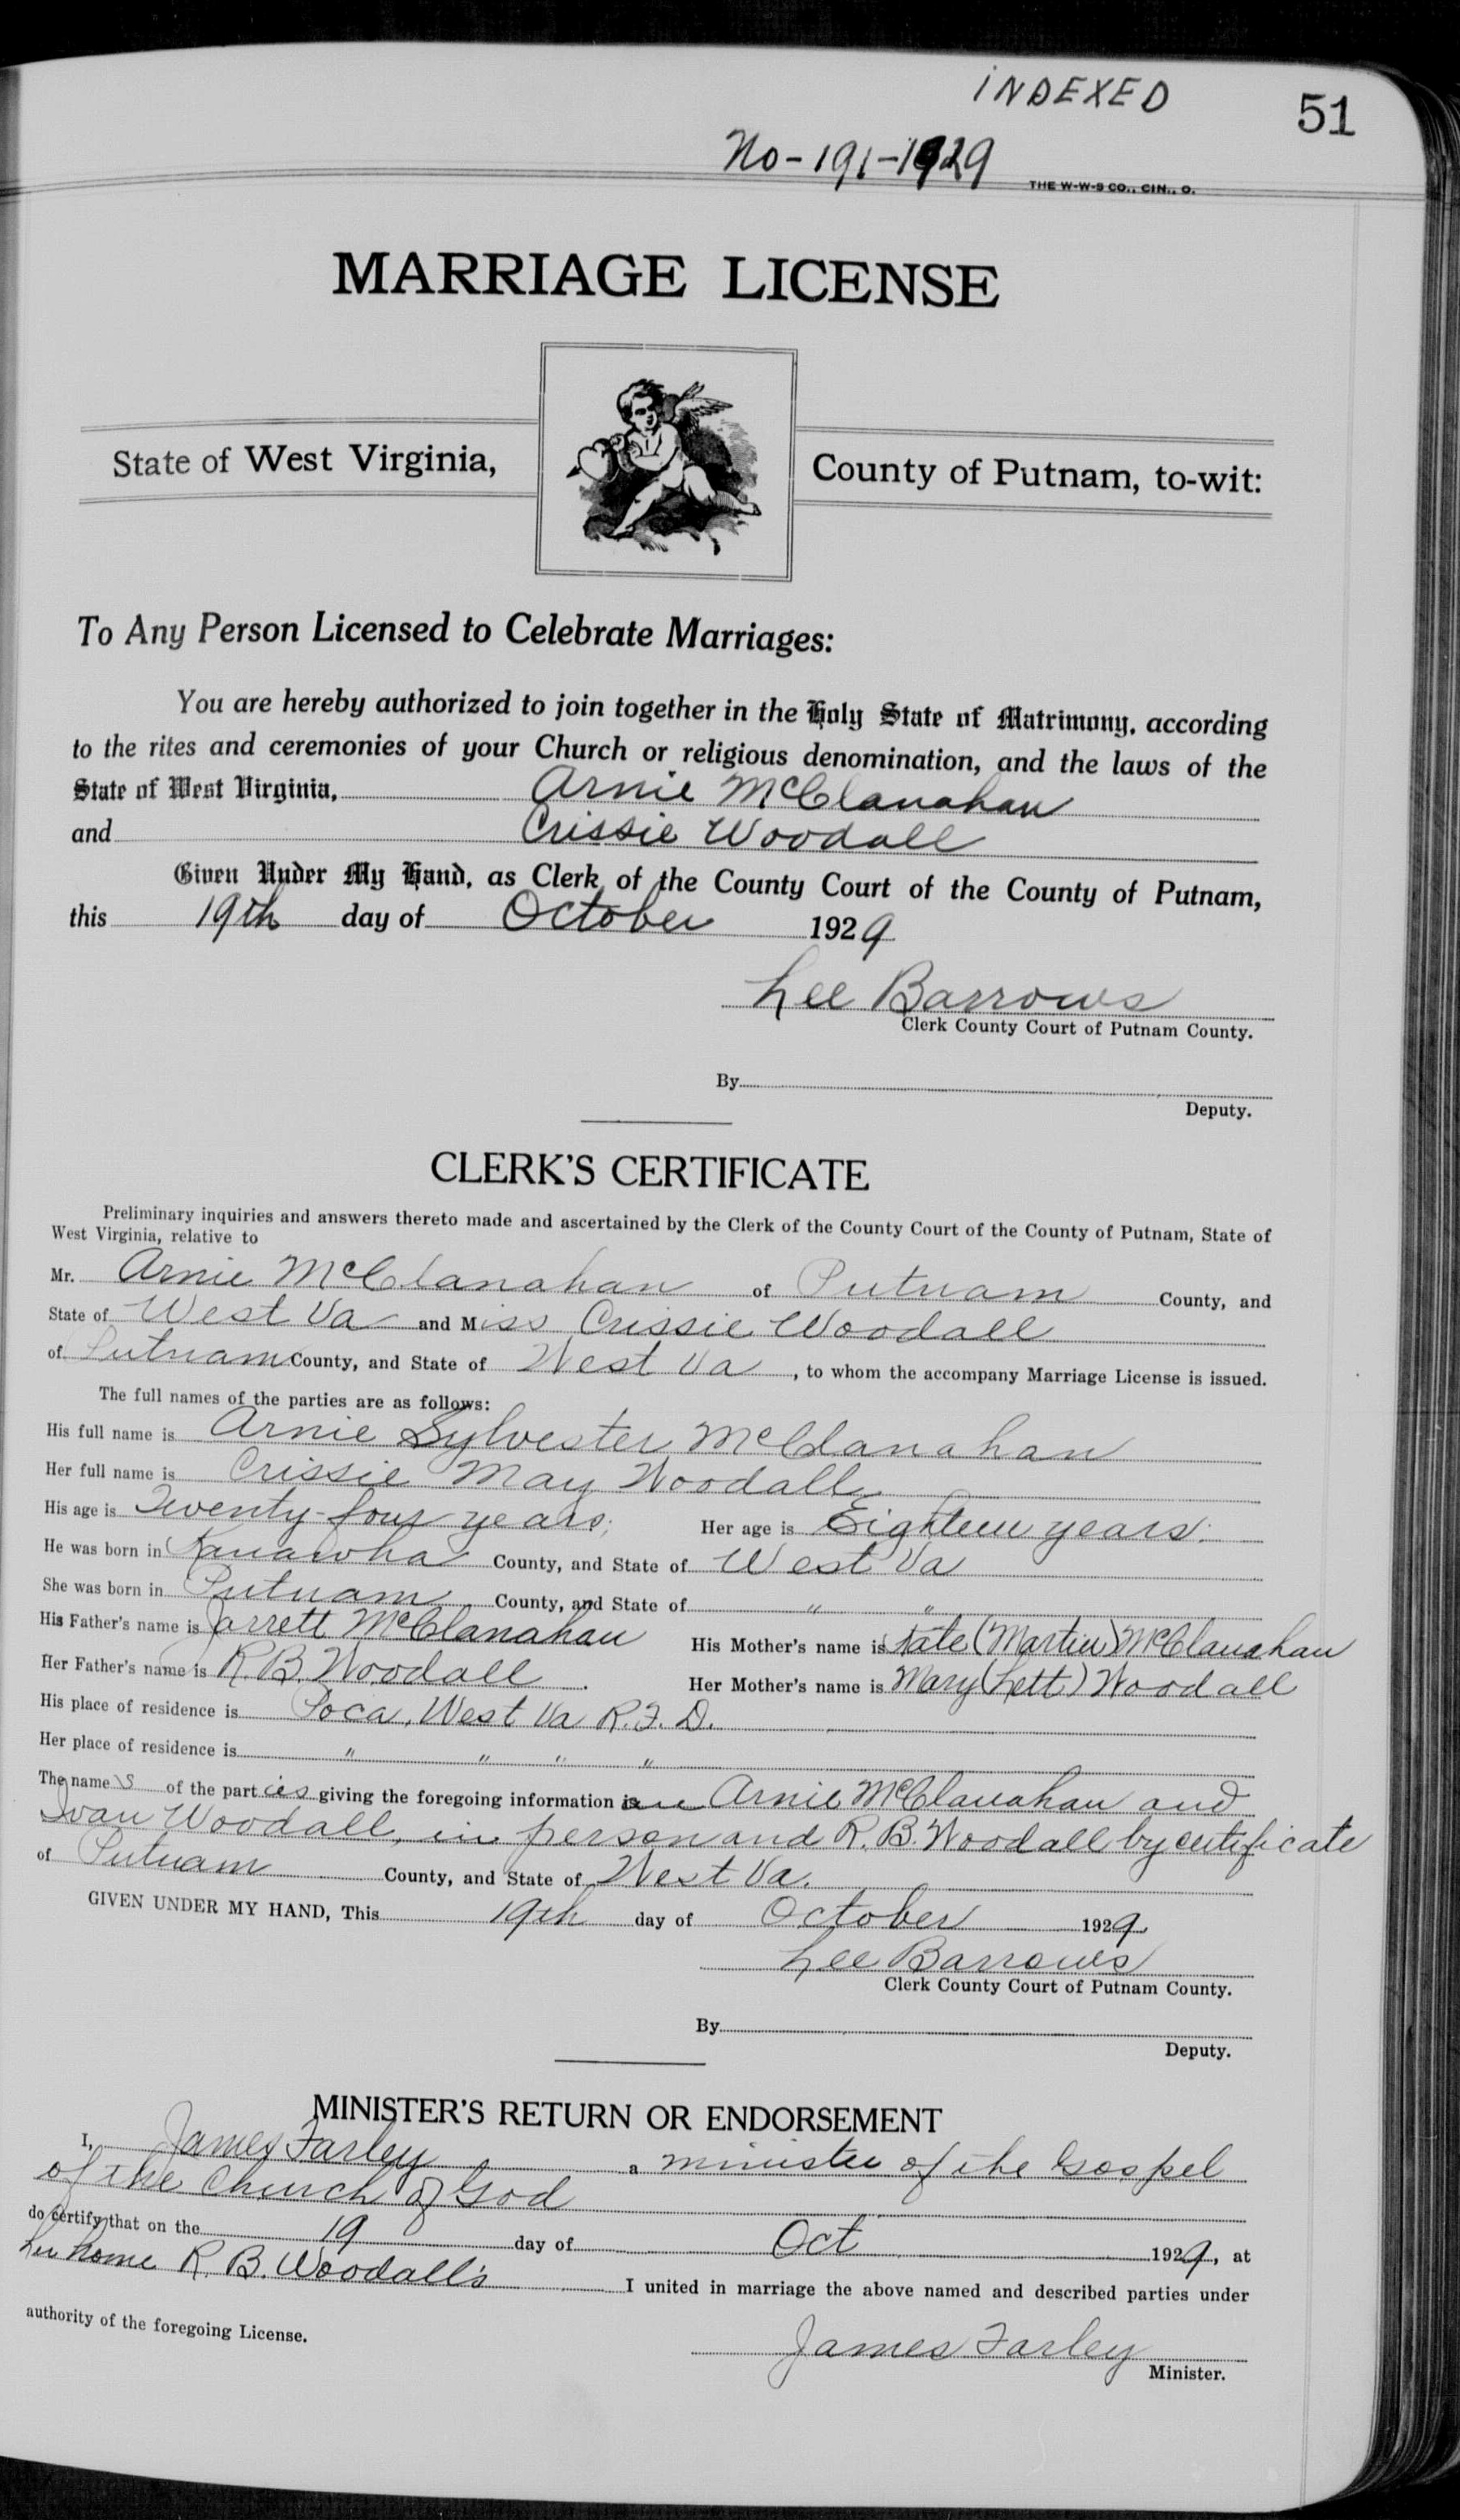 INDEXED
51
No-191-1929
THE W-W-S CO., CIN., O.
MARRIAGE LICENSE
State of West Virginia,
County of Putnam, to-wit:
To Any Person Licensed to Celebrate Marriages:
You are hereby authorized to join together in the Holy State of Matrimony, according
to the rites and ceremonies of your Church or religious denomination, and the laws of the
State of West Virginia, Arnie McClanahan
and Crissie Woodall
Given Under My Hand, as Clerk of the County Court of the County of Putnam,
this 19th day of October 1929
Lee Barrows
Clerk County Court of Putnam County.
By
Deputy.
CLERK'S CERTIFICATE
Preliminary inquiries and answers thereto made and ascertained by the Clerk of the County Court of the County of Putnam, State of
West Virginia, relative to
Mr. Arnie McClanahan of Putnam County, and
State of West Va and Miss Crissie Woodall
of Putnam County, and State of West Va, to whom the accompany Marriage License is issued.
The full names of the parties are as follows:
His full name is Arnie Sylvester McClanahan
Her full name is Crissie May Woodall
His age is Twenty-four years; Her age is Eighteen years.
He was born in Kanawha County, and State of West Va
She was born in Putnam County, and State of " "
His Father's name is Jarrett McClanahan His Mother's name is Kate (Martin) McClanahan
Her Father's name is R.B. Woodall. Her Mother's name is Mary (Lett) Woodall
His place of residence is Poca, West Va R.F.D.
Her place of residence is " " " "
The names of the parties giving the foregoing information are Arnie McClanahan and
Ivan Woodall, in person and R.B. Woodall by certificate
of Putnam County, and State of West Va.
GIVEN UNDER MY HAND, This 19th day of October 1929
Lee Barrows
Clerk County Court of Putnam County.
By
Deputy.
MINISTER'S RETURN OR ENDORSEMENT
I, James Farley a minister of the Gospel
of the Church of God
do certify that on the 19 day of Oct 1929, at
her home R. B. Woodall's I united in marriage the above named and described parties under
authority of the foregoing License.
James Farley
Minister.